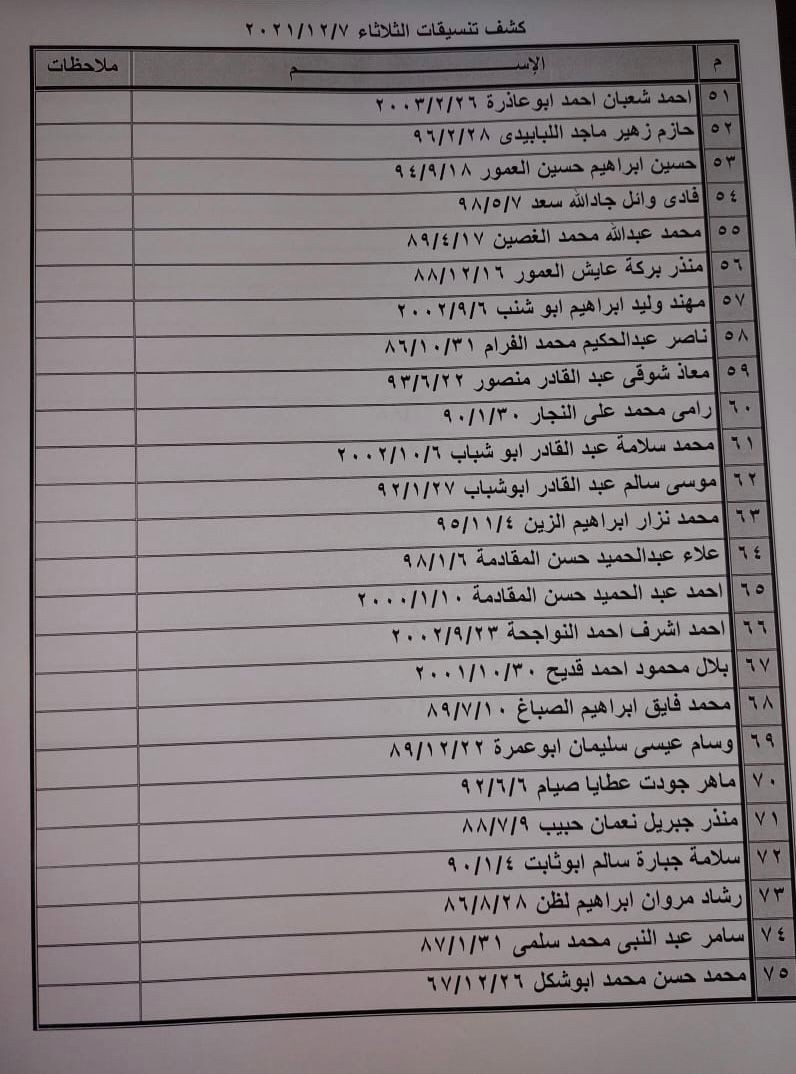 كشف تنسيقات الثلاثاء ٢٠٢١/١٢/٧
م الإســـــــم ملاحظات
٥١ احمد شعبان احمد ابوعاذرة ٢٠٠٣/٢/٢٦
٥٢ حازم زهير ماجد اللبابيدى ٩٦/٢/٢٨
٥٣ حسين ابراهيم حسين العمور ٩٤/٩/١٨
٥٤ فادى وائل جادالله سعد ٩٨/٥/٧
٥٥ محمد عبدالله محمد الغصين ٨٩/٤/١٧
٥٦ منذر بركة عايش العمور ٨٨/١٢/١٦
٥٧ مهند وليد ابراهيم ابو شنب ٢٠٠٢/٩/٦
٥٨ ناصر عبدالحكيم محمد الفرام ٨٦/١٠/٣١
٥٩ معاذ شوقى عبد القادر منصور ٩٣/٦/٢٢
٦٠ رامى محمد على النجار ٩٠/١/٣٠
٦١ محمد سلامة عبد القادر ابو شباب ٢٠٠٢/١٠/٦
٦٢ موسى سالم عبد القادر ابوشباب ٩٢/١/٢٧
٦٣ محمد نزار ابراهيم الزين ٩٥/١١/٤
٦٤ علاء عبدالحميد حسن المقادمة ٩٨/١/٦
٦٥ احمد عبد الحميد حسن المقادمة ٢٠٠٠/١/١٠
٦٦ احمد اشرف احمد النواجحة ٢٠٠٢/٩/٢٣
٦٧ بلال محمود احمد قديح ٢٠٠١/١٠/٣٠
٦٨ محمد فايق ابراهيم الصباغ ٨٩/٧/١٠
٦٩ وسام عيسى سليمان ابوعمرة ٨٩/١٢/٢٢
٧٠ ماهر جودت عطايا صيام ٩٢/٦/٦
٧١ منذر جبريل نعمان حبيب ٨٨/٧/٩
٧٢ سلامة جبارة سالم ابوثابت ٩٠/١/٤
٧٣ رشاد مروان ابراهيم لظن ٨٦/٨/٢٨
٧٤ سامر عبد النبى محمد سلمى ٨٧/١/٣١
٧٥ محمد حسن محمد ابوشكل ٦٧/١٢/٢٦